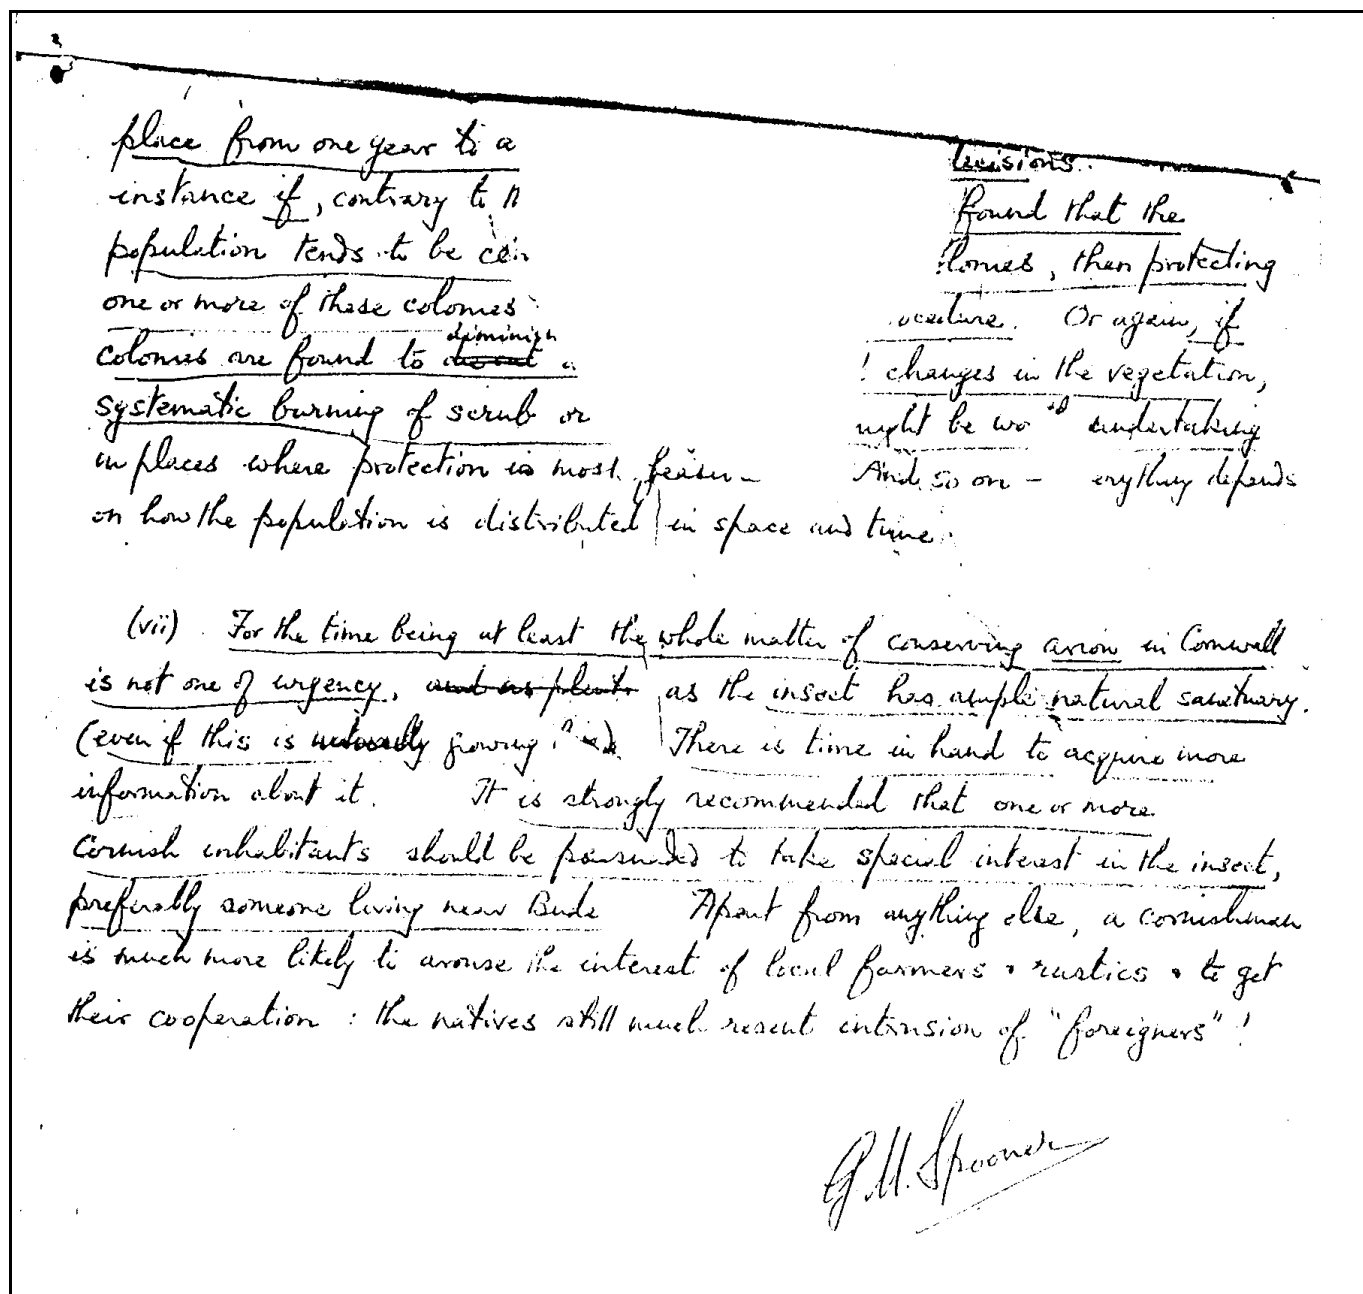 place from one year to a decisions.
instance if, contrary to found that the
population tends to be lonies, then protecting
one or more of these colonies ocedure. Or again, if
diminish
colonies are found to changes in the vegetation,
systematic burning of scrub or might be wo undertaking
in places where protection is most And so on – erything depends
on how the population is distributed in space and time.
(vii) For the time being at least the whole matter of conserving arion in Cornwall
is not one of urgency, as the insect has ample natural sanctuary.
(even if this is growing There is time in hand to acquire more
information about it. It is strongly recommended that one or more
Cornish inhabitants should be persuaded to take special interest in the insect,
preferably someone living near Bude Apart from anything else, a cornishman
is much more likely to arouse the interest of local farmers & rustics & to get
their cooperation : the natives still much resent intrusion of "foreigners" !
G.M. Spooner